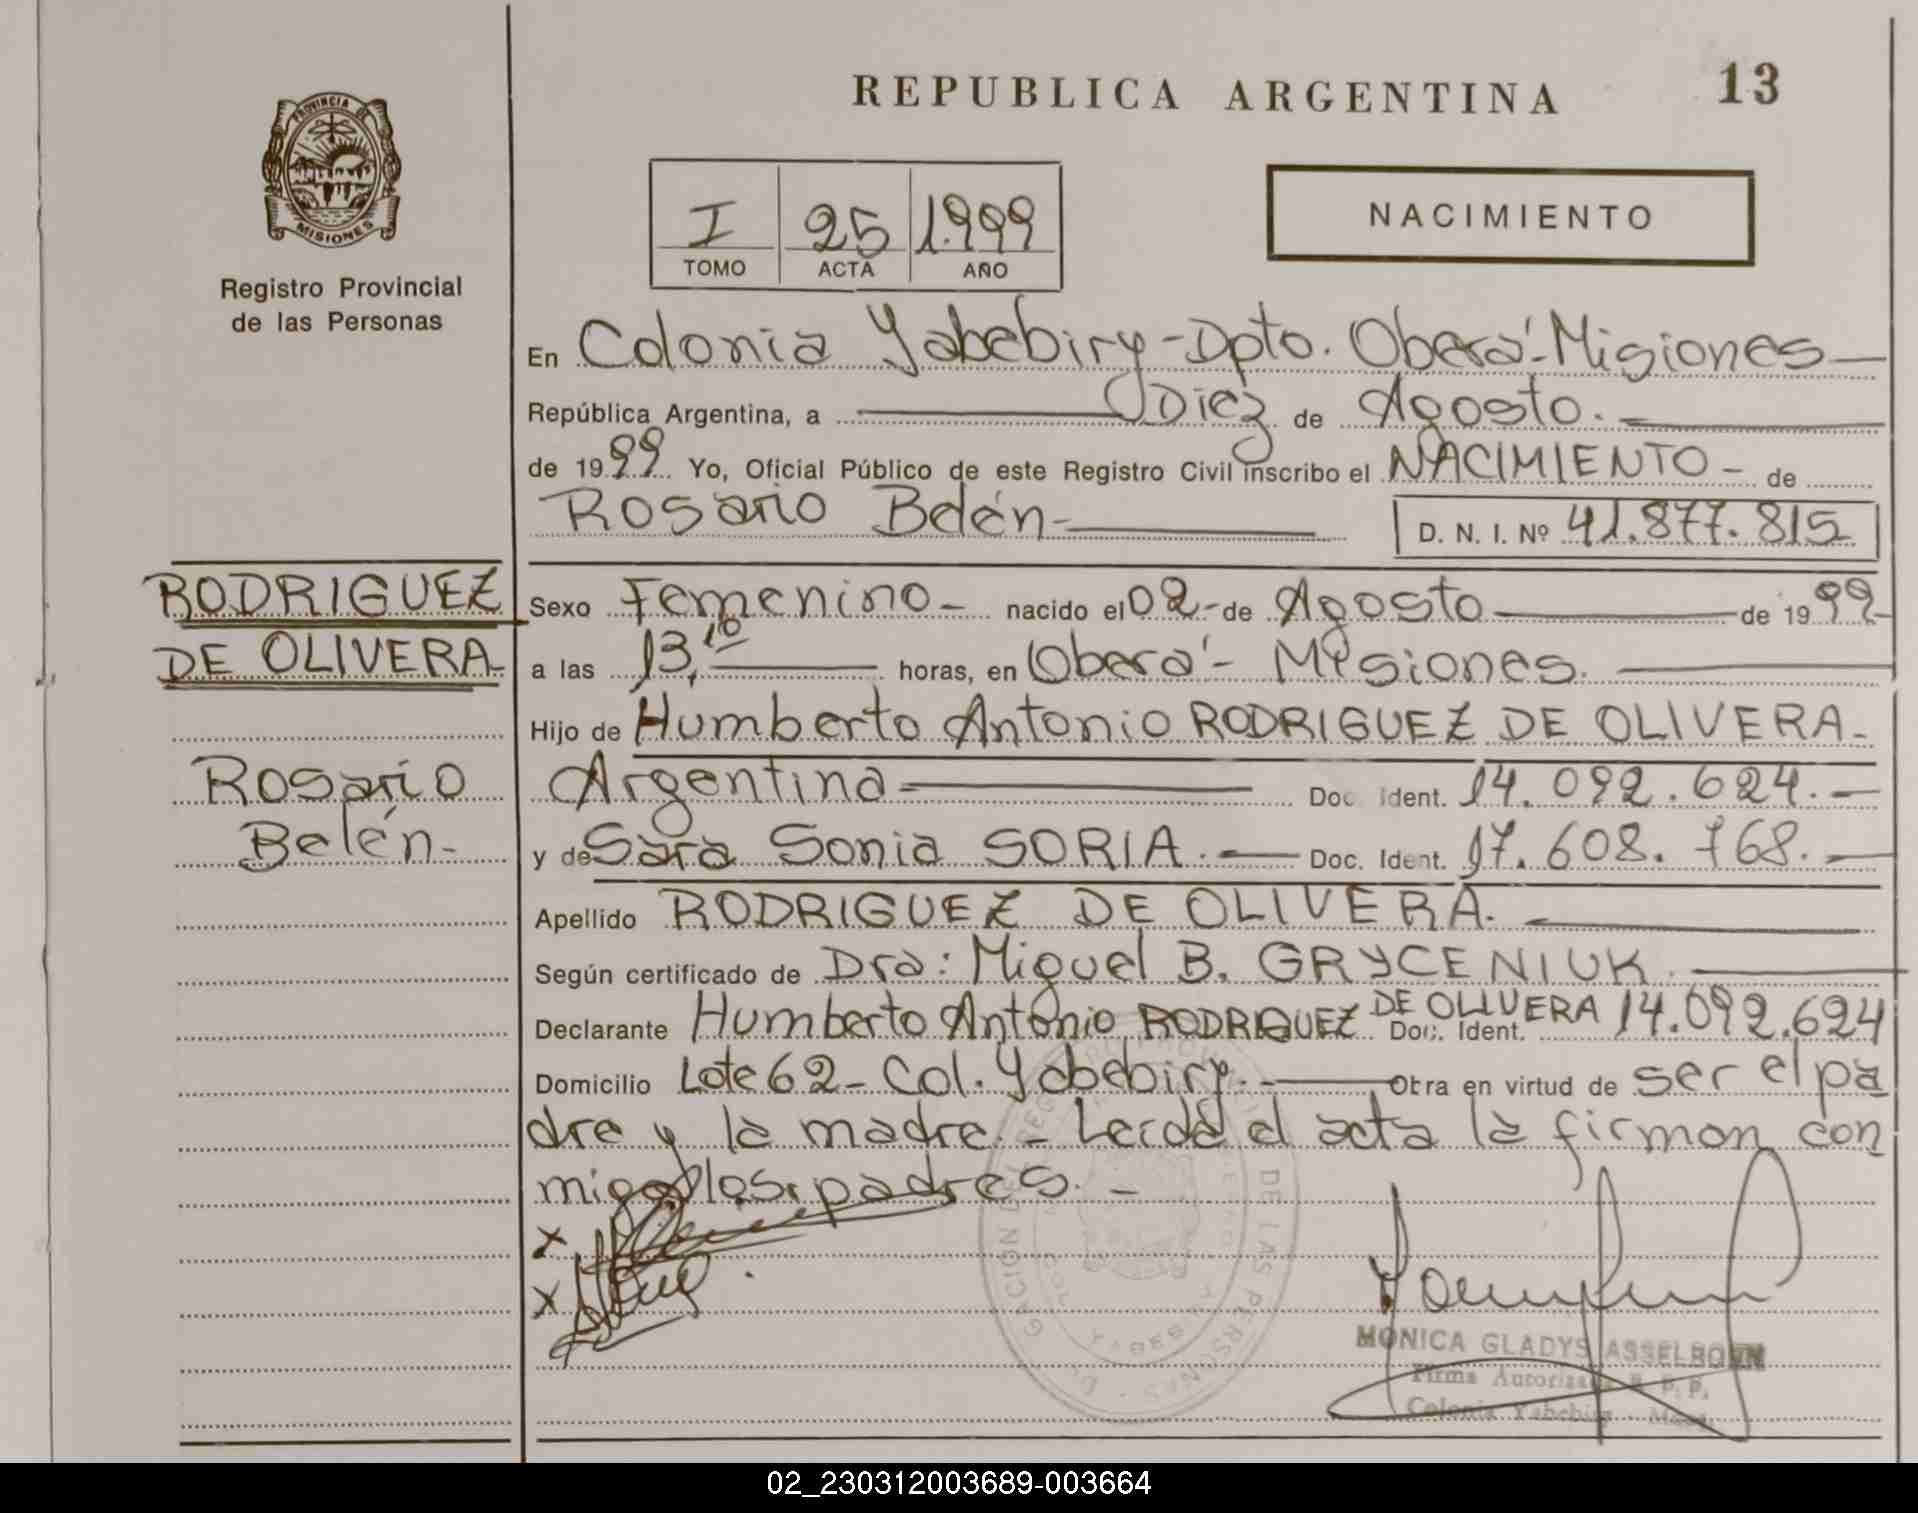 REPUBLICA ARGENTINA
13
PROVINCIA DE
MISIONES
Registro Provincial
de las Personas
I 25 1.999
TOMO ACTA AÑO
NACIMIENTO
En Colonia Yabebiry - Dpto. Oberá - Misiones
República Argentina, a Diez de Agosto.
de 1999 Yo, Oficial Público de este Registro Civil inscribo el NACIMIENTO - de
Rosario Belén - D. N. I. Nº 41.877.815
RODRIGUEZ
DE OLIVERA -
Rosario
Belén -
Sexo Femenino - nacido el 02 - de Agosto de 1999 -
a las 13,10 horas, en Oberá - Misiones.
Hijo de Humberto Antonio RODRIGUEZ DE OLIVERA -
Argentina Doc. Ident. 14.092.624. -
y de Sara Sonia SORIA. - Doc. Ident. 17.608.768. -
Apellido RODRIGUEZ DE OLIVERA.
Según certificado de Dra: Miguel B. GRYCENIUK.
Declarante Humberto Antonio RODRIGUEZ DE OLIVERA Doc. Ident. 14.092.624
Domicilio Lote 62 - Col. Yabebiry. - Obra en virtud de ser el pa
dre y la madre. - Leída el acta la firman con
migo los padres. -
x
x
DE LAS PERSONAS
MONICA GLADYS ASSELBORN
Firma Autorizada R. P. P.
Colonia Yabebiry - Mnes.
02_230312003689-003664